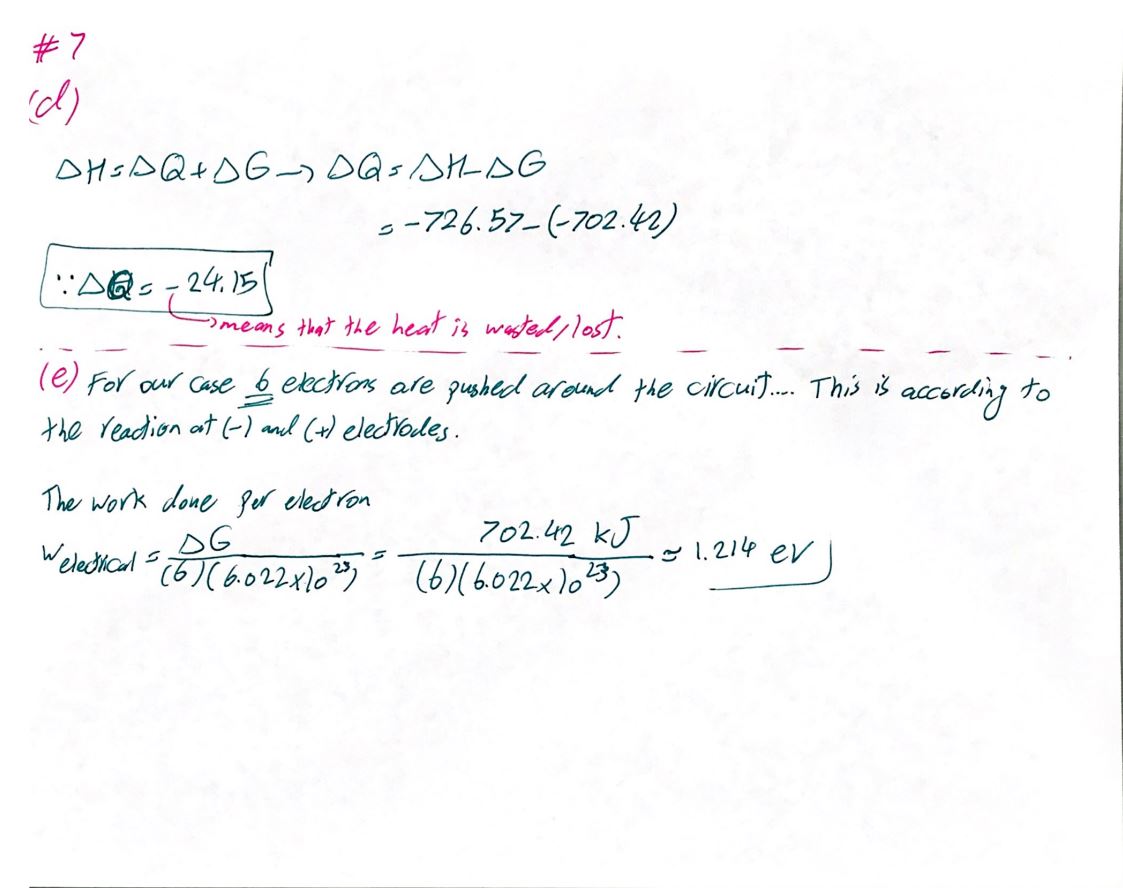 #7
(d)
ΔH=ΔQ+ΔG→ΔQ=ΔH-ΔG
=-726.57-(-702.42)
∵ΔQ=-24.15
→means that the heat is wasted/lost.
(e) For our case 6 electrons are pushed around the circuit.... This is according to
the reaction at (-) and (+) electrodes.
The work done per electron
Welectrical = ΔG/(6)(6.022x10²³) = 702.42 kJ/(6)(6.022x10²³) ≃ 1.214 eV